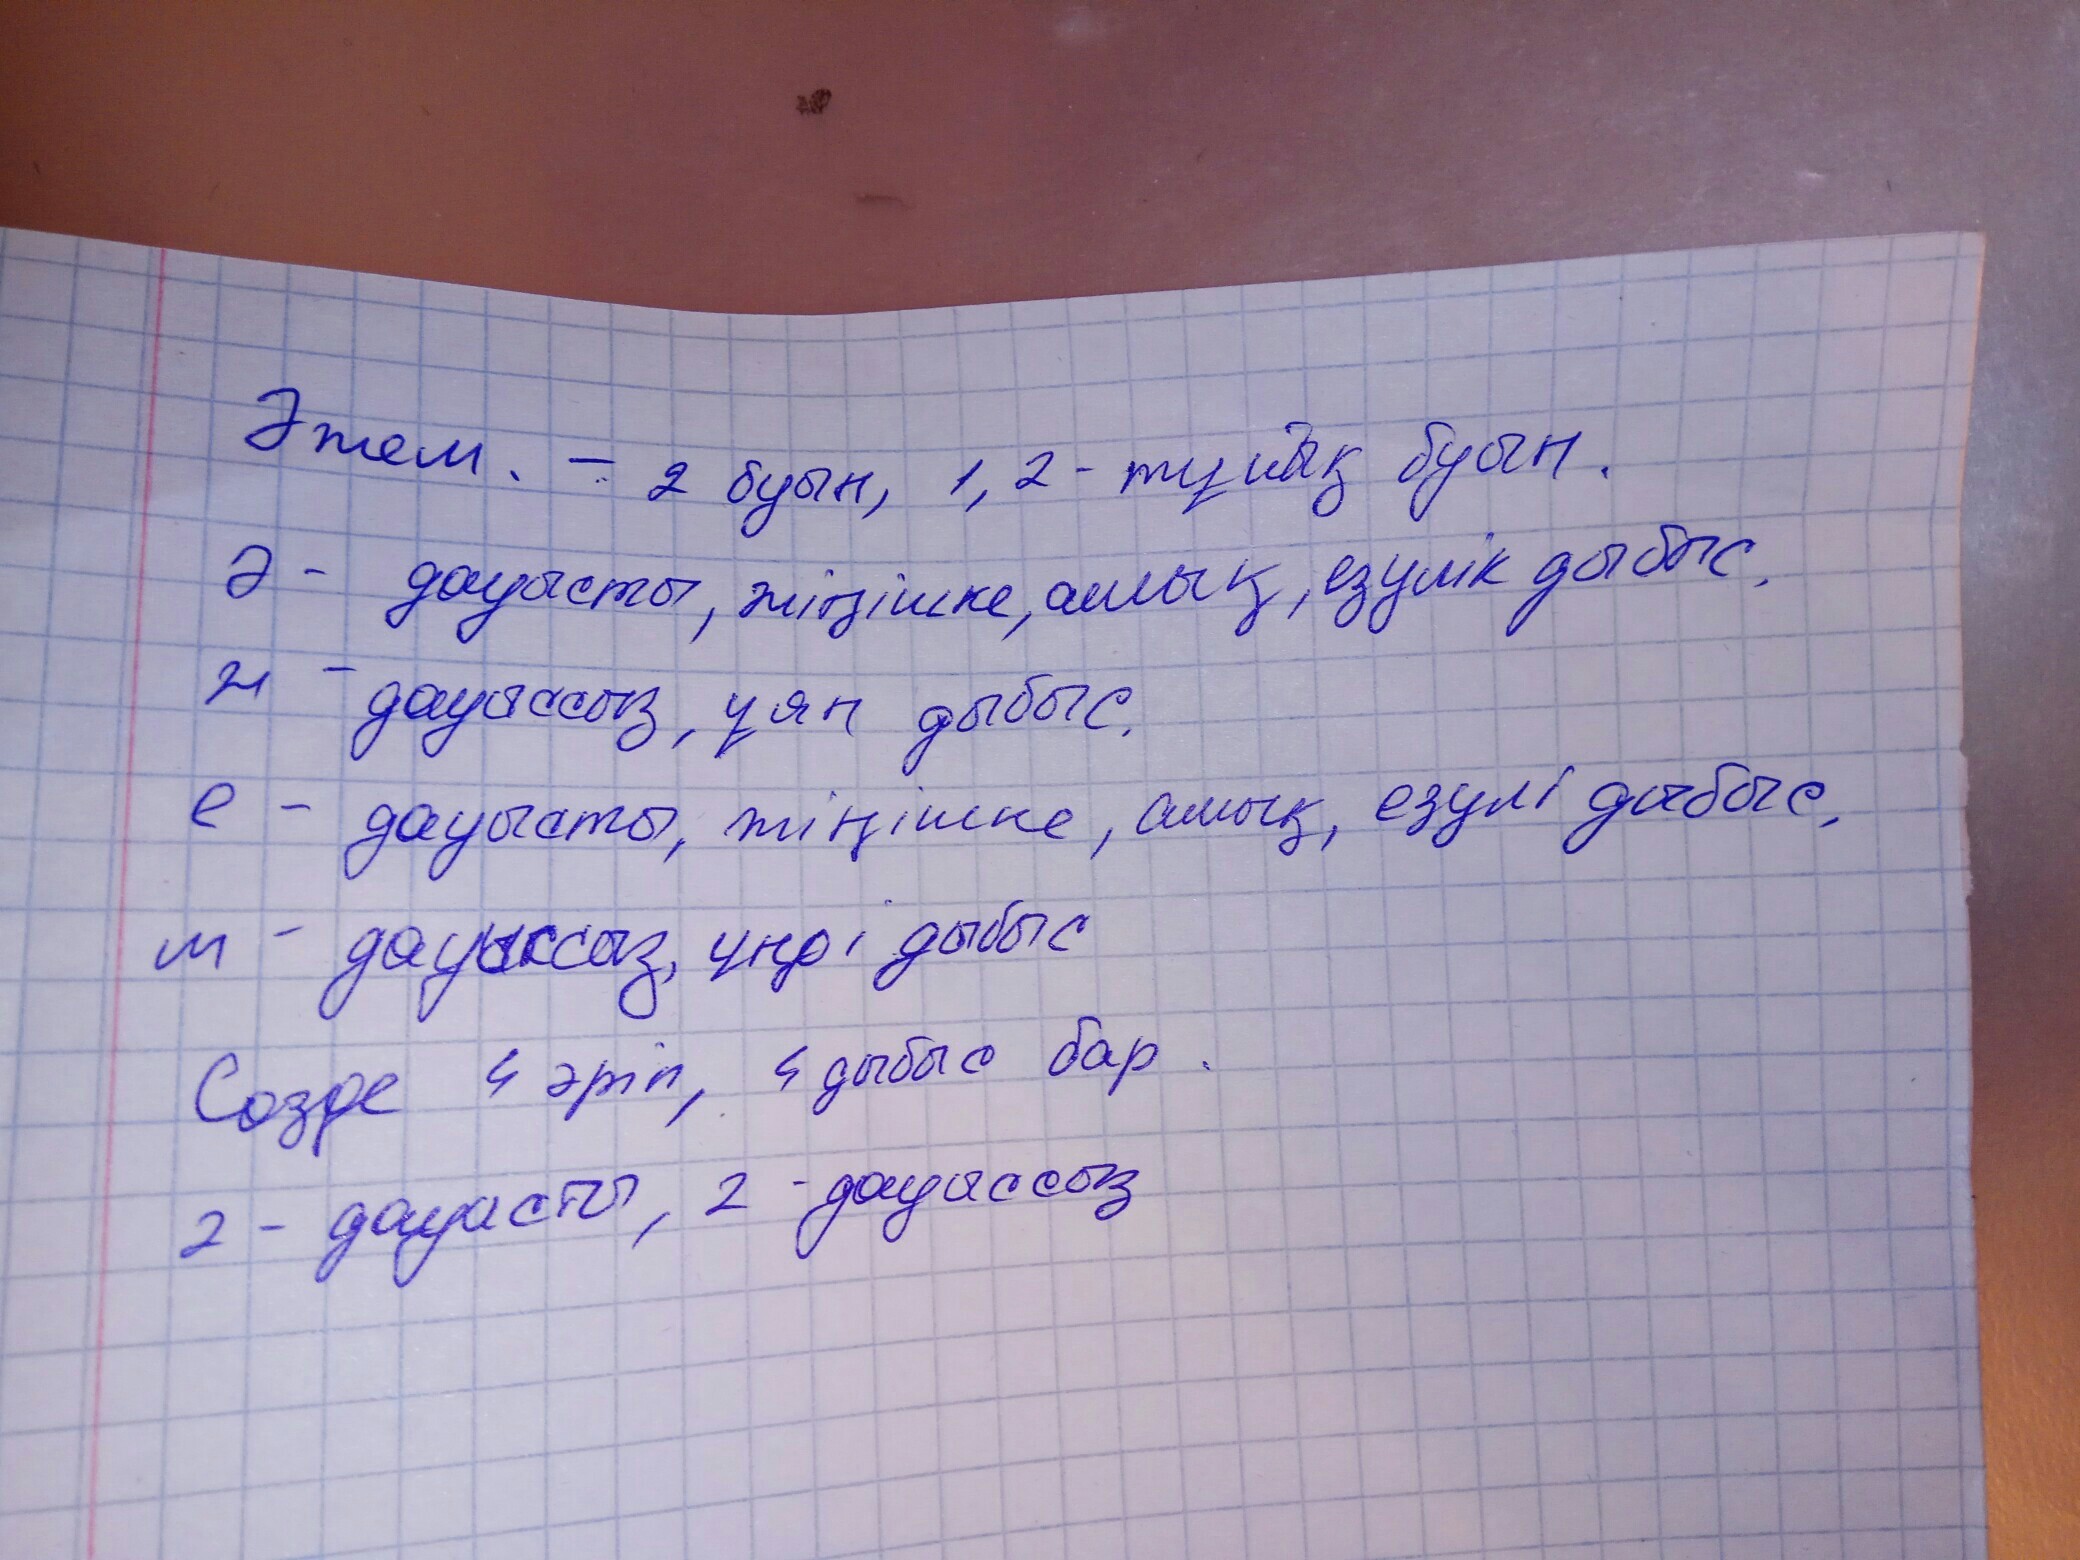 Әжем. – 2 буын, 1, 2 - тұйық буын.
Ә - дауысты, жіңішке, ашық, езулік дыбыс.
ж – дауыссыз, ұян дыбыс.
е – дауысты, жіңішке, ашық, езулі дыбыс,
м – дауыссыз, үнді дыбыс
Сөзде 4 әріп, 4 дыбыс бар.
2 – дауысты, 2 - дауыссыз